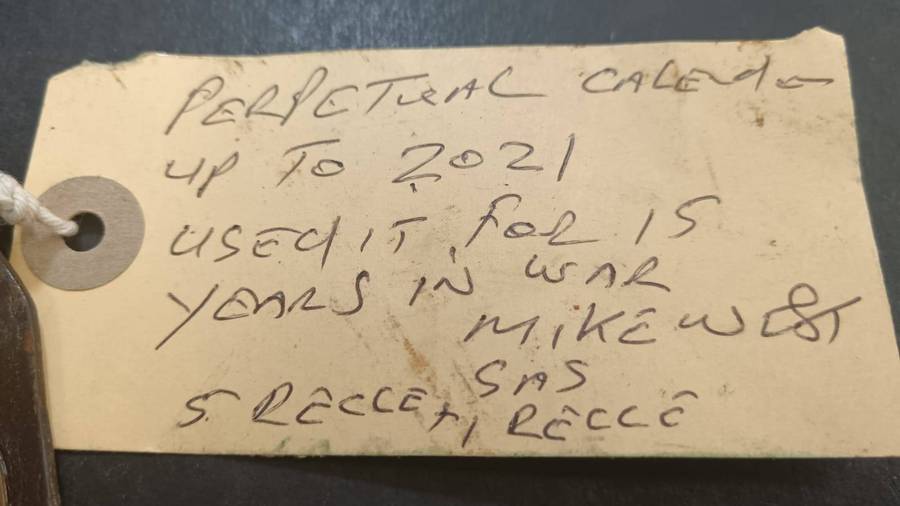 PERPETUAL CALENDE
UP TO 2021
USED IT FOR 15
YEARS IN WAR
MIKE WEST
SAS
5 RECCE + 1 RECCE